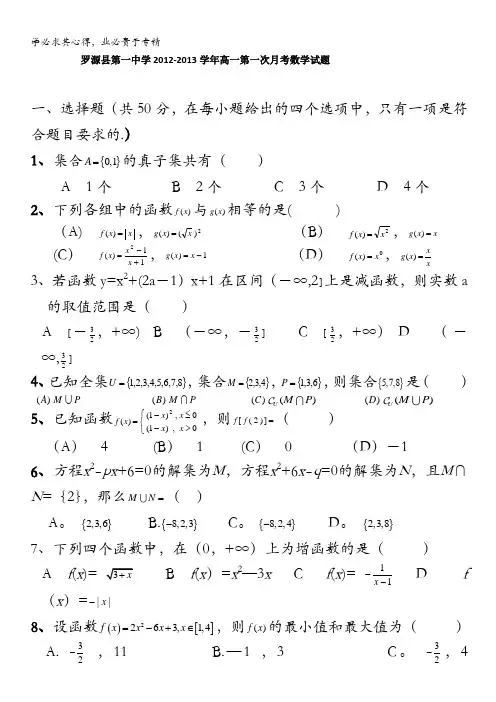 学必求其心得，业必贵于专精
罗源县第一中学 2012-2013 学年高一第一次月考数学试题
一、选择题（共 50 分，在每小题给出的四个选项中，只有一项是符
合题目要求的.）
1、集合 A={0,1} 的真子集共有（ ）
A 1 个 B 2 个 C 3 个 D 4 个
2、下列各组中的函数 f(x) 与 g(x) 相等的是( )
(A) f(x)=|x|，g(x)=(√x)² (B) f(x)=√x²，g(x)=x
(C) f(x)=(x²-1)/(x+1)，g(x)=x-1 (D) f(x)=x⁰，g(x)=x/x
3、若函数 y=x²+(2a－1）x+1 在区间（－∞,2］上是减函数，则实数 a
的取值范围是（ ）
A ［－3/2，+∞) B （－∞，－3/2］ C ［3/2，+∞） D （－
∞,3/2］
4、已知全集 U={1,2,3,4,5,6,7,8}，集合 M={2,3,4}，P={1,3,6}，则集合 {5,7,8} 是（ ）
(A) M∪P (B) M∩P (C) ∁U(M∩P) (D) ∁U(M∪P)
5、已知函数 f(x)={(1-x)², x≤0 (1-x), x>0，则 f[f(2)]=（ ）
（A） 4 (B） 1 (C） 0 （D）－1
6、方程 x²-px+6=0 的解集为 M，方程 x²+6x-q=0 的解集为 N，且 M∩
N=｛2}，那么 M∪N=（ ）
A。 {2,3,6} B.{-8,2,3} C。 {-8,2,4} D。 {2,3,8}
7、下列四个函数中，在（0，+∞）上为增函数的是（ ）
A f(x)= 3+x B f(x）=x²—3x C f(x)= -1/(x-1) D f
（x）=-|x|
8、设函数 f(x)=2x²-6x+3, x∈[1,4]，则 f(x) 的最小值和最大值为（ ）
A. -3/2 ，11 B.—1 ，3 C。 -3/2 ，4